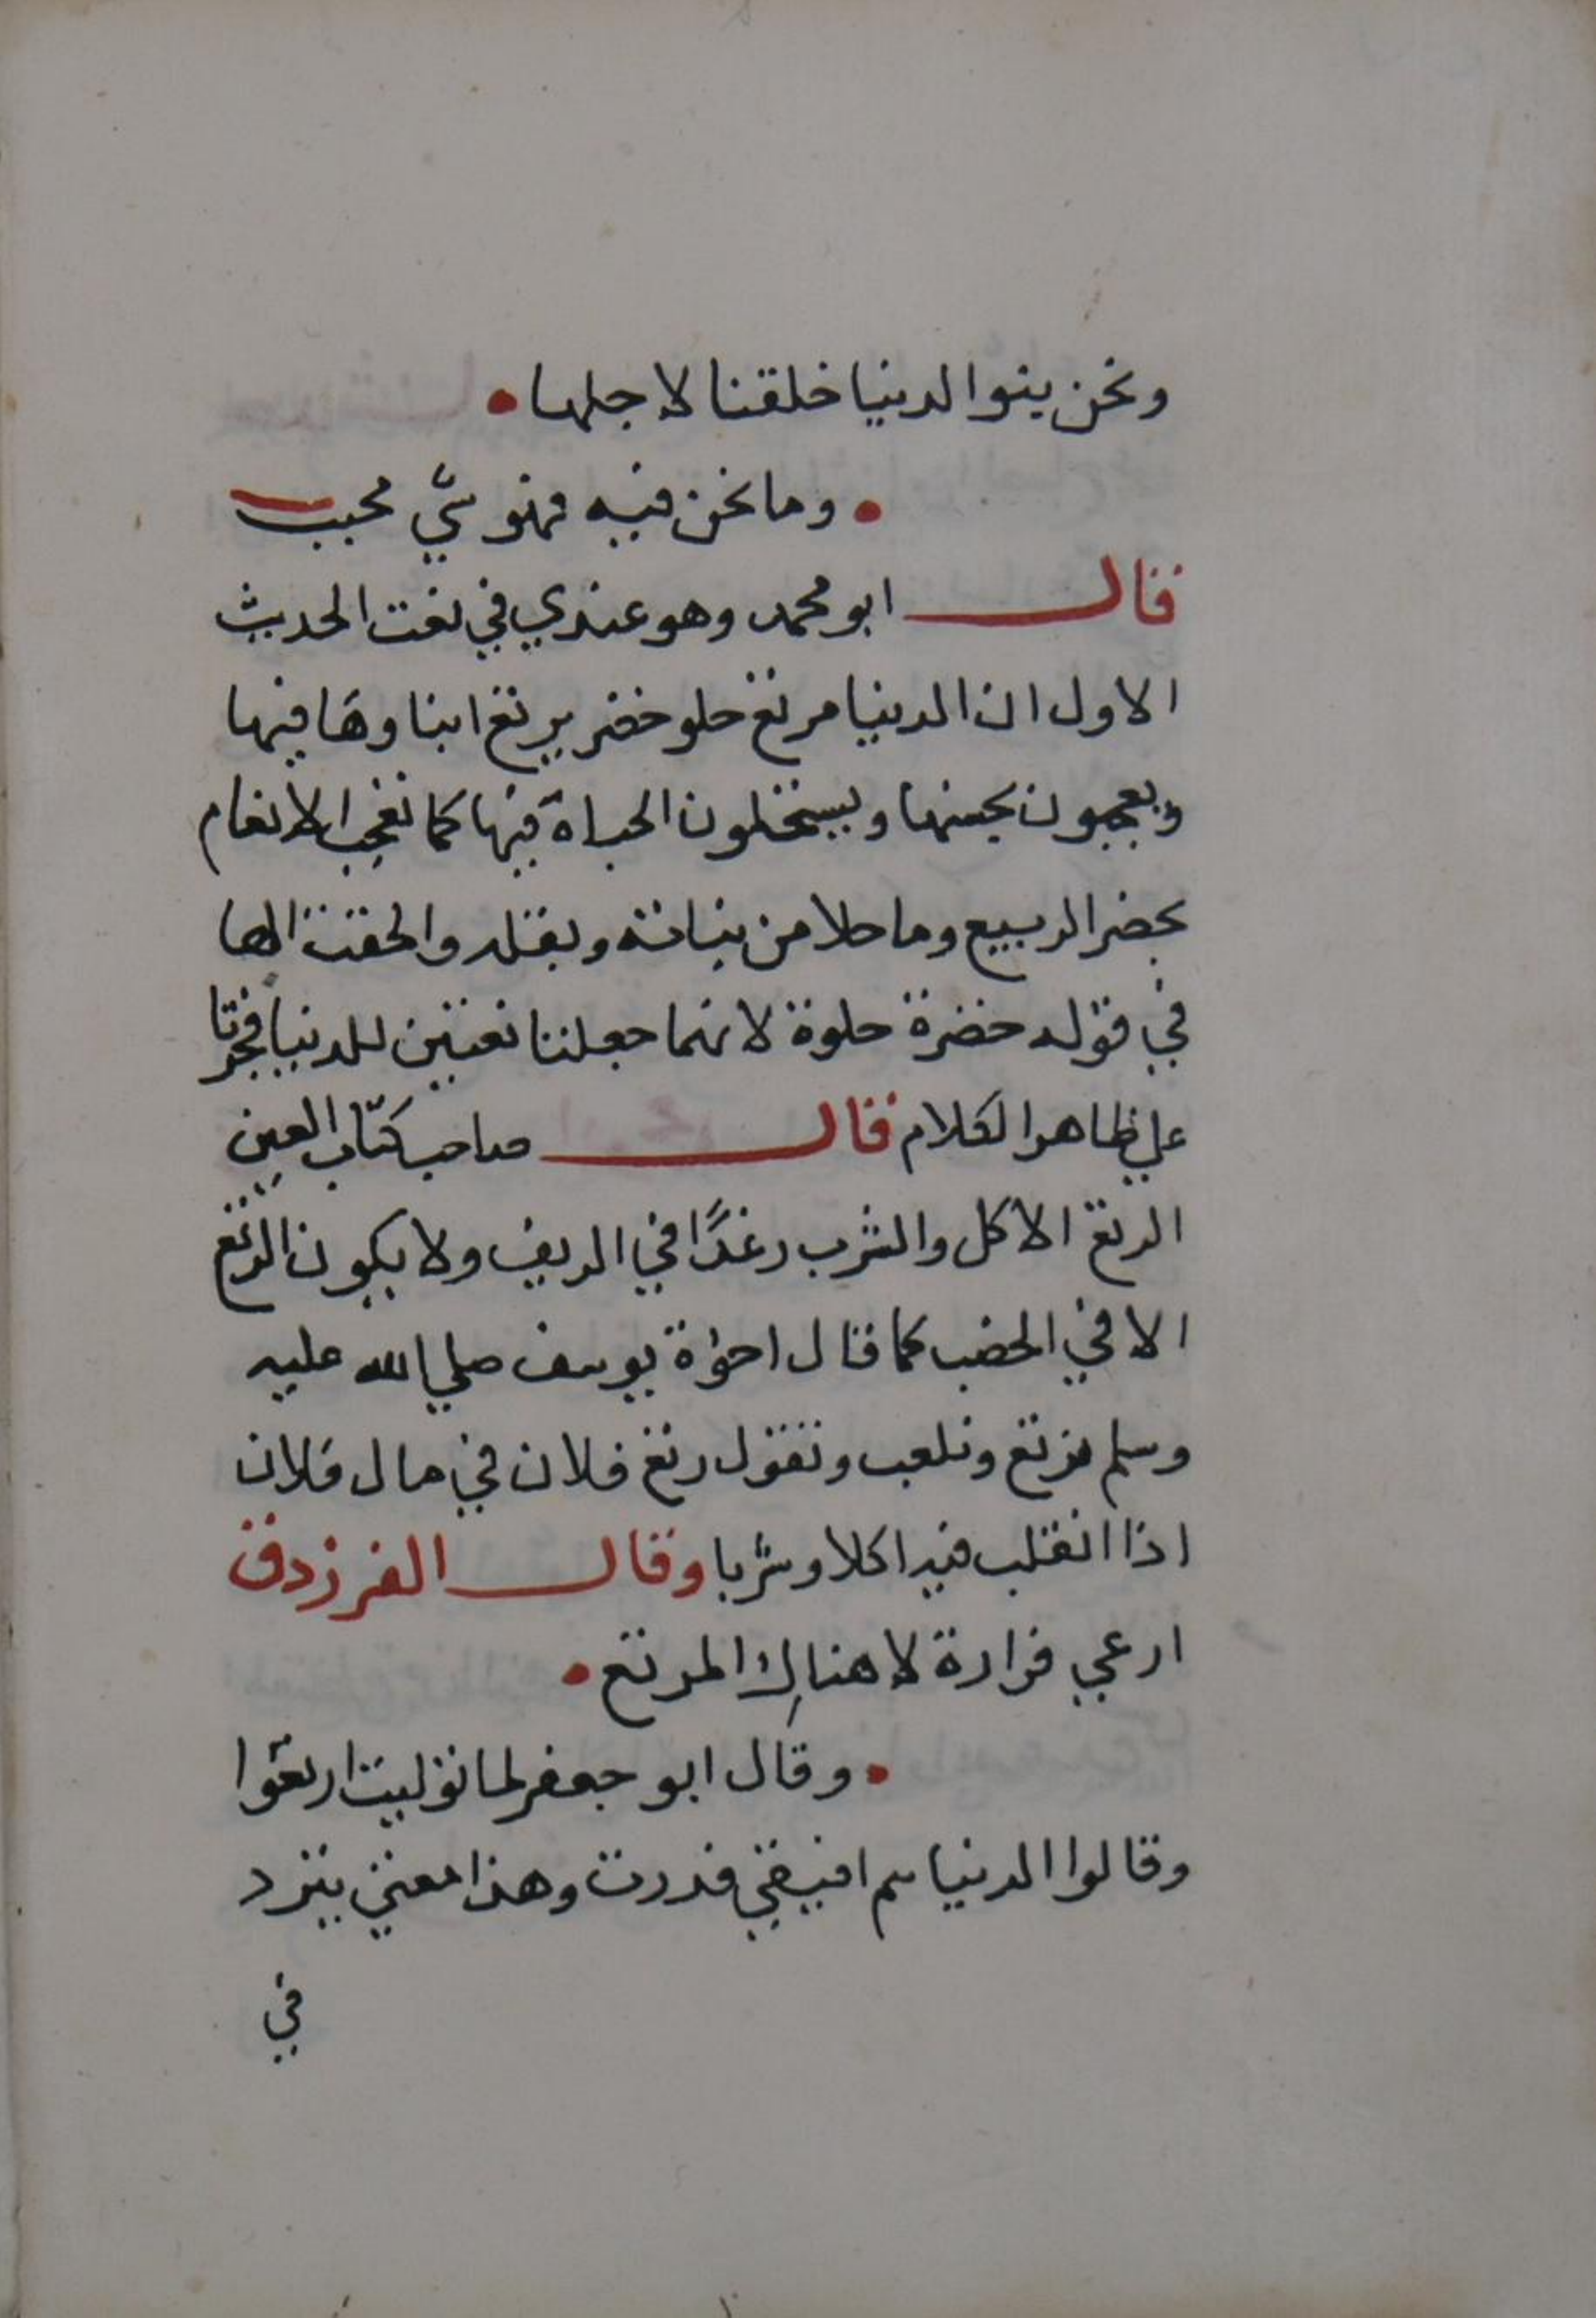 ونحن بنوا الدنيا خلقنا لاجلها •
• وما نحن فيه فهو شي محبب
فقال ابو محمد وهو عندي في نعت الحديث
الاول ان الدنيا مرتع حلو خضر يرتع ابناوها فيها
ويعجبون بحسنها ويستحلون الحياة فيها كما تعجب الانعام
بخضر الربيع وما حلا من نباته وبقله والحقت الها
في قوله خضرة حلوة لانهما جعلتا نعتين للدنيا فجرتا
علي ظاهر الكلام فقال صاحب كتاب العين
الرتع الاكل والشرب رغدًا في الريف ولا يكون الرتع
الا في الخصب كما قال اخوة يوسف صلي الله عليه
وسلم نرتع ونلعب وتقول رتع فلان في مال فلان
اذا انقلب فيه اكلا وشربا وقال الفرزدق
ارعي فزارة لا هناك المرتع •
• وقال ابو جعفر لما توليت ارتعوا
وقالوا الدنيا سم افيفي قدرت وهذا معني ينرد
في